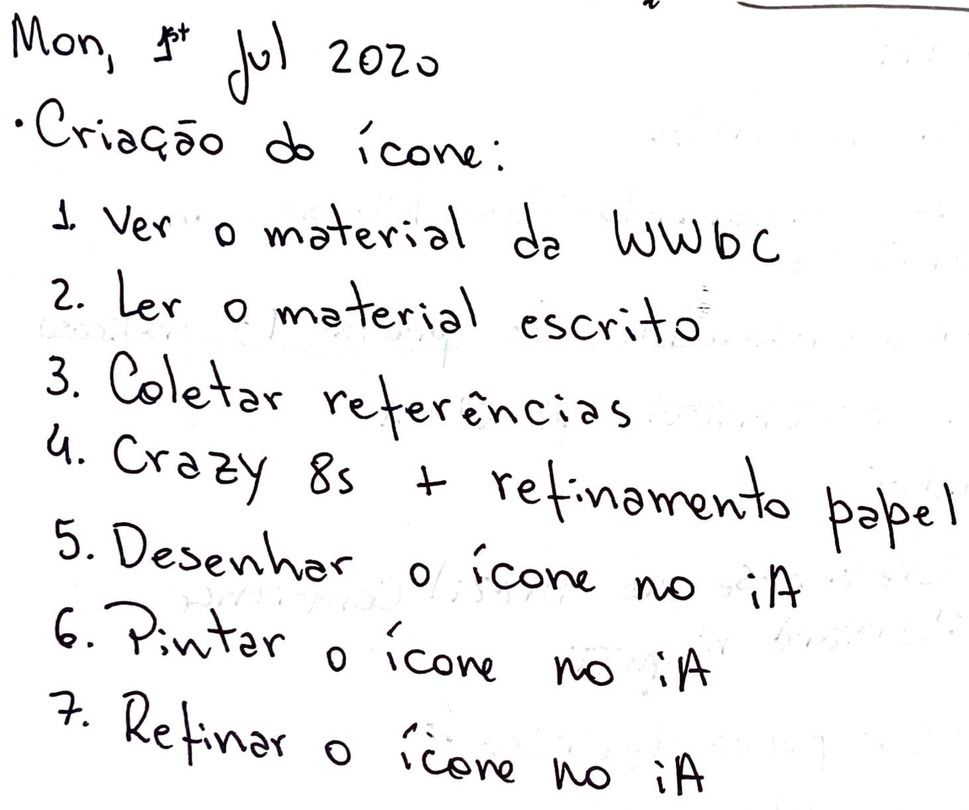 Mon, 1st Jul 2020
· Criação do ícone:
1. Ver o material da WWbC
2. Ler o material escrito
3. Coletar referências
4. Crazy 8s + refinamento papel
5. Desenhar o ícone no iA
6. Pintar o ícone no iA
7. Refinar o ícone no iA